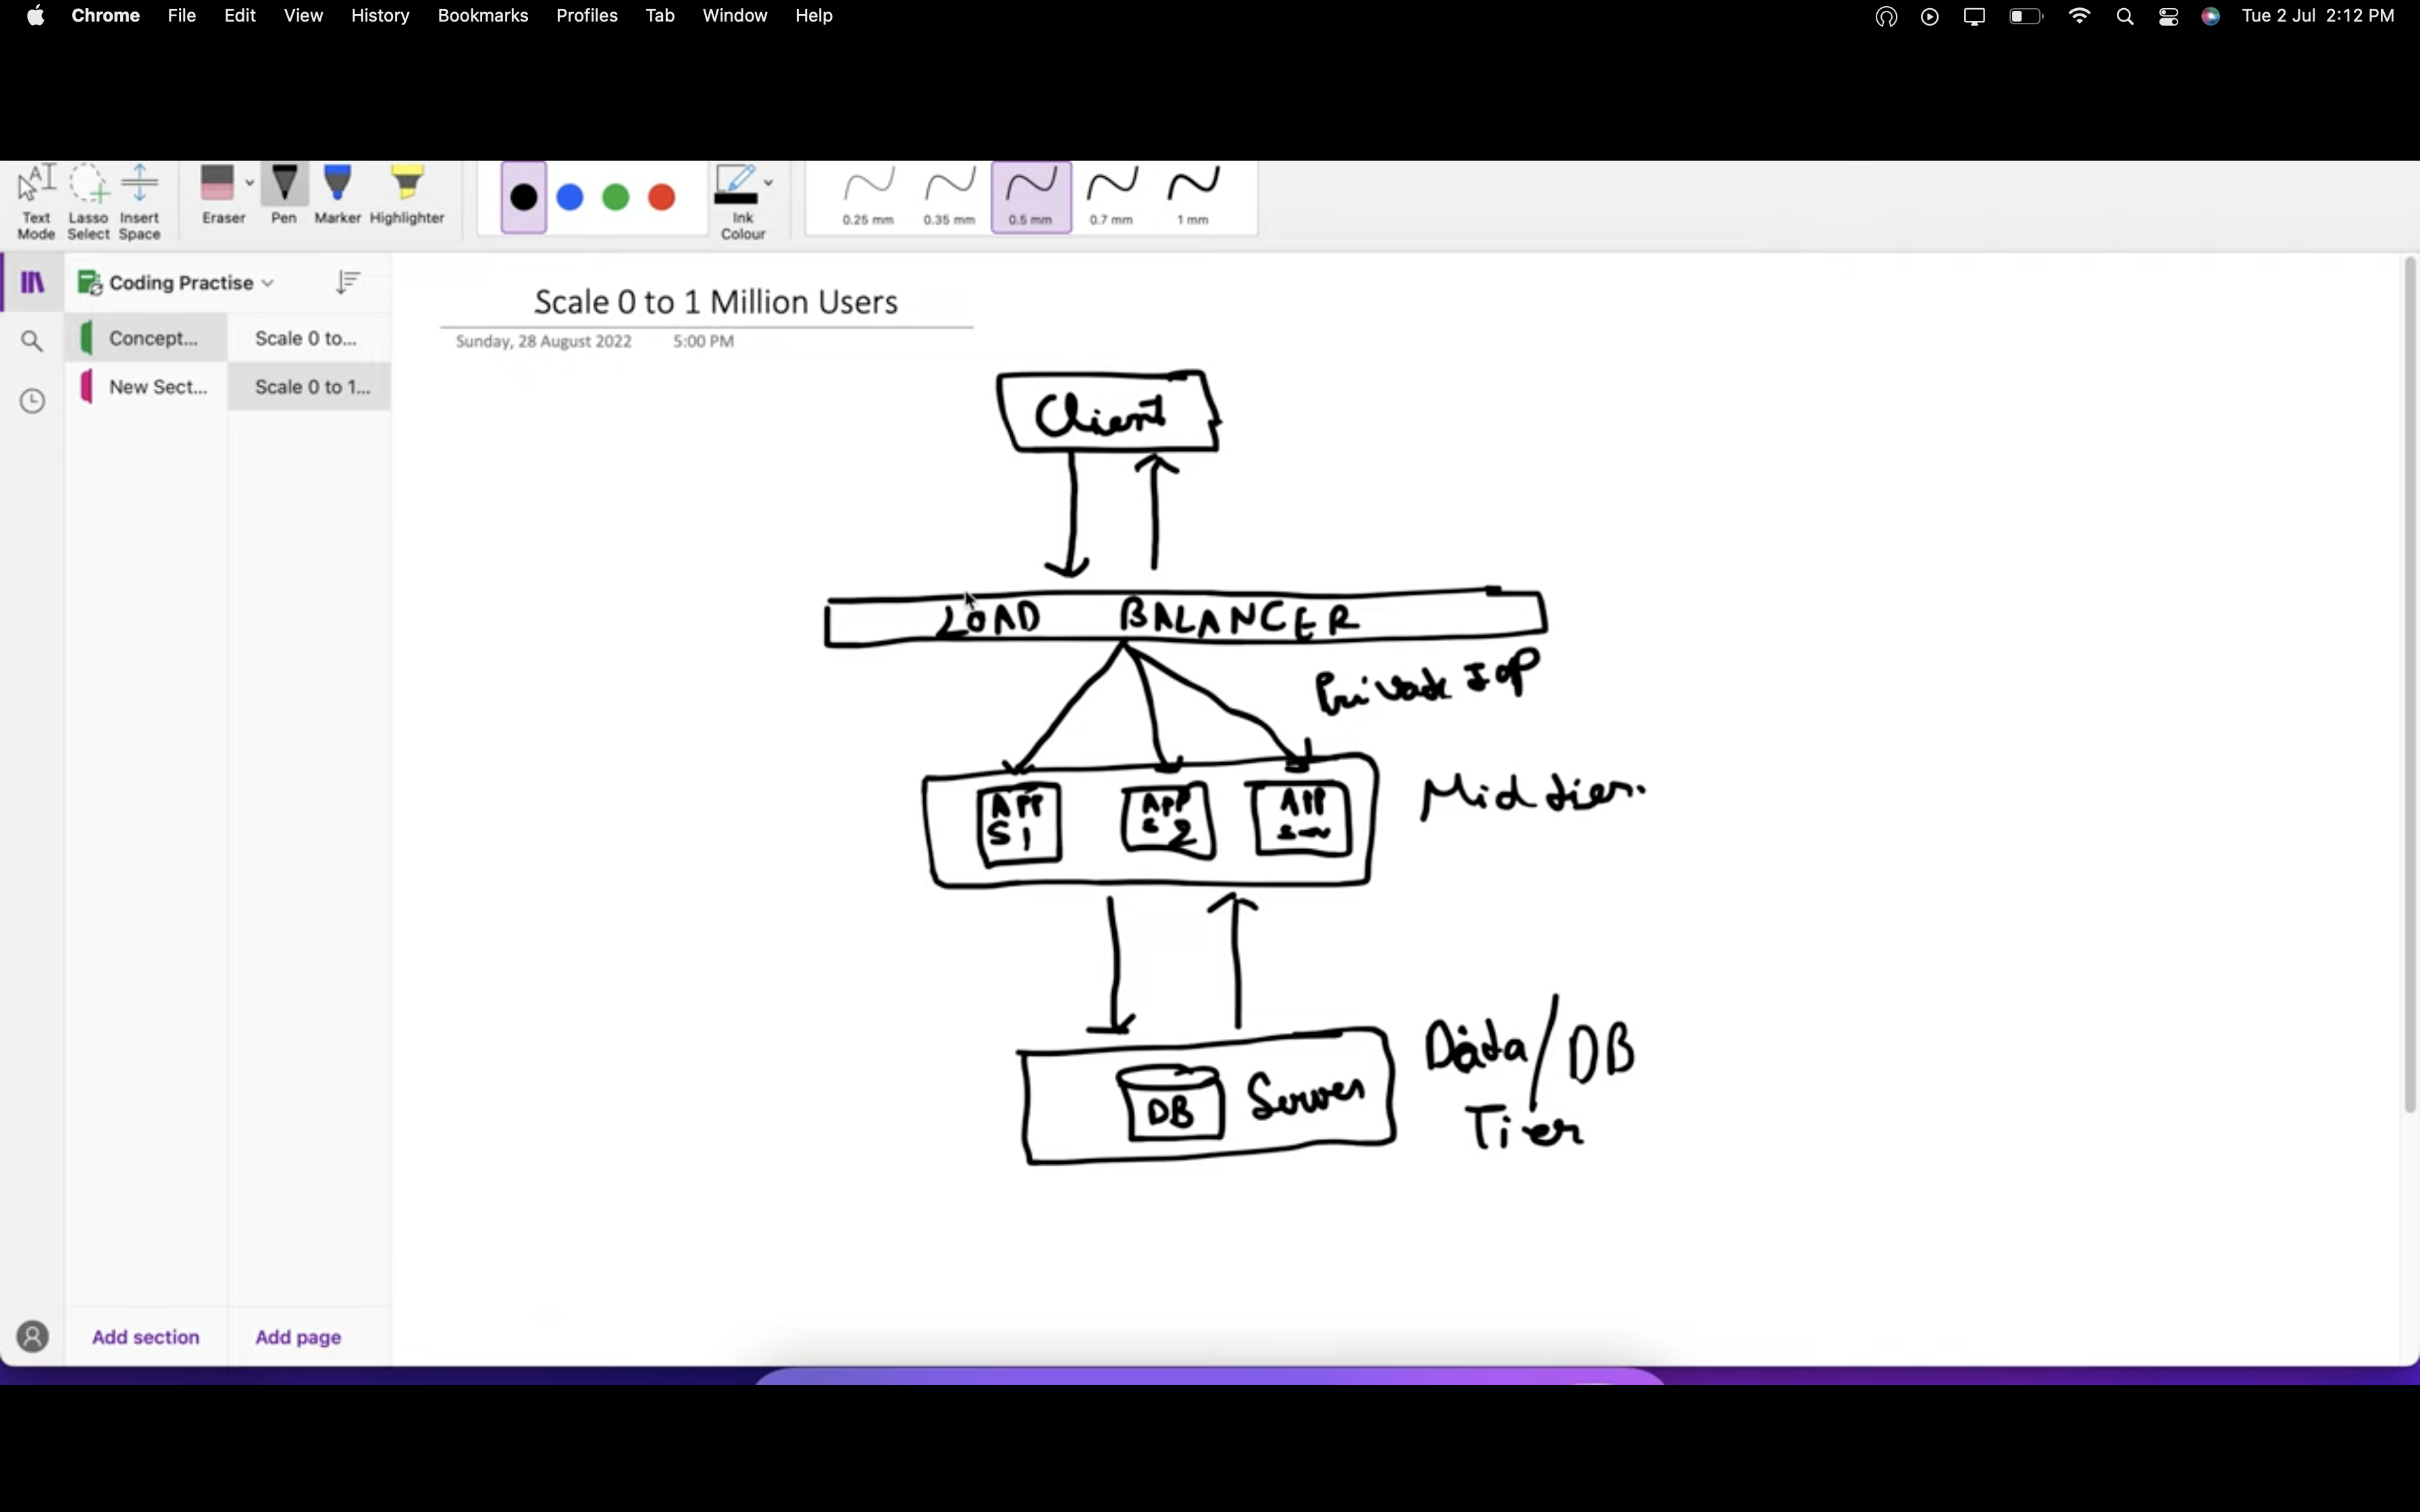 Chrome File Edit View History Bookmarks Profiles Tab Window Help Tue 2 Jul 2:12 PM
Text Mode
Lasso Select
Insert Space
Eraser
Pen
Marker
Highlighter
Ink Colour
0.25 mm
0.35 mm
0.5 mm
0.7 mm
1 mm
Coding Practise
Concept...
New Sect...
Scale 0 to...
Scale 0 to 1...
Scale 0 to 1 Million Users
Sunday, 28 August 2022 5:00 PM
Client
LOAD BALANCER
Private
APP
S 1
APP
S 2
APP
Mid tier.
DB Server
Data/DB
Tier
Add section
Add page